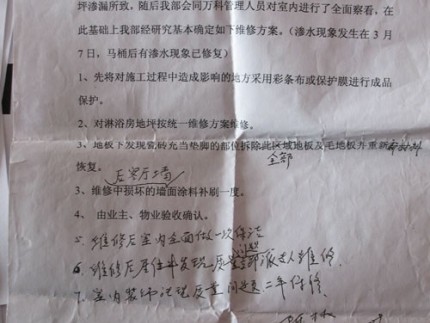 坪渗漏所致，随后我部会同万科管理人员对室内进行了全面察看，在
此基础上我部经研究基本确定如下维修方案。（渗水现象发生在3月
7日，马桶后有渗水现象已修复）
1、先将对施工过程中造成影响的地方采用彩条布或保护膜进行成品
保护。
2、对淋浴房地坪按统一维修方案维修。
3、地板下发现瓷砖充当垫脚的部位拆除此区域地板及毛地板并重新
全部
恢复。
3、维修中损坏的墙面涂料补刷一度。
4、 由业主、物业验收确认。
5、维修后室内全面做一次保洁
6、维修后居住中发现质量 派人维修.
7、室内装饰 质量问题二年保修.